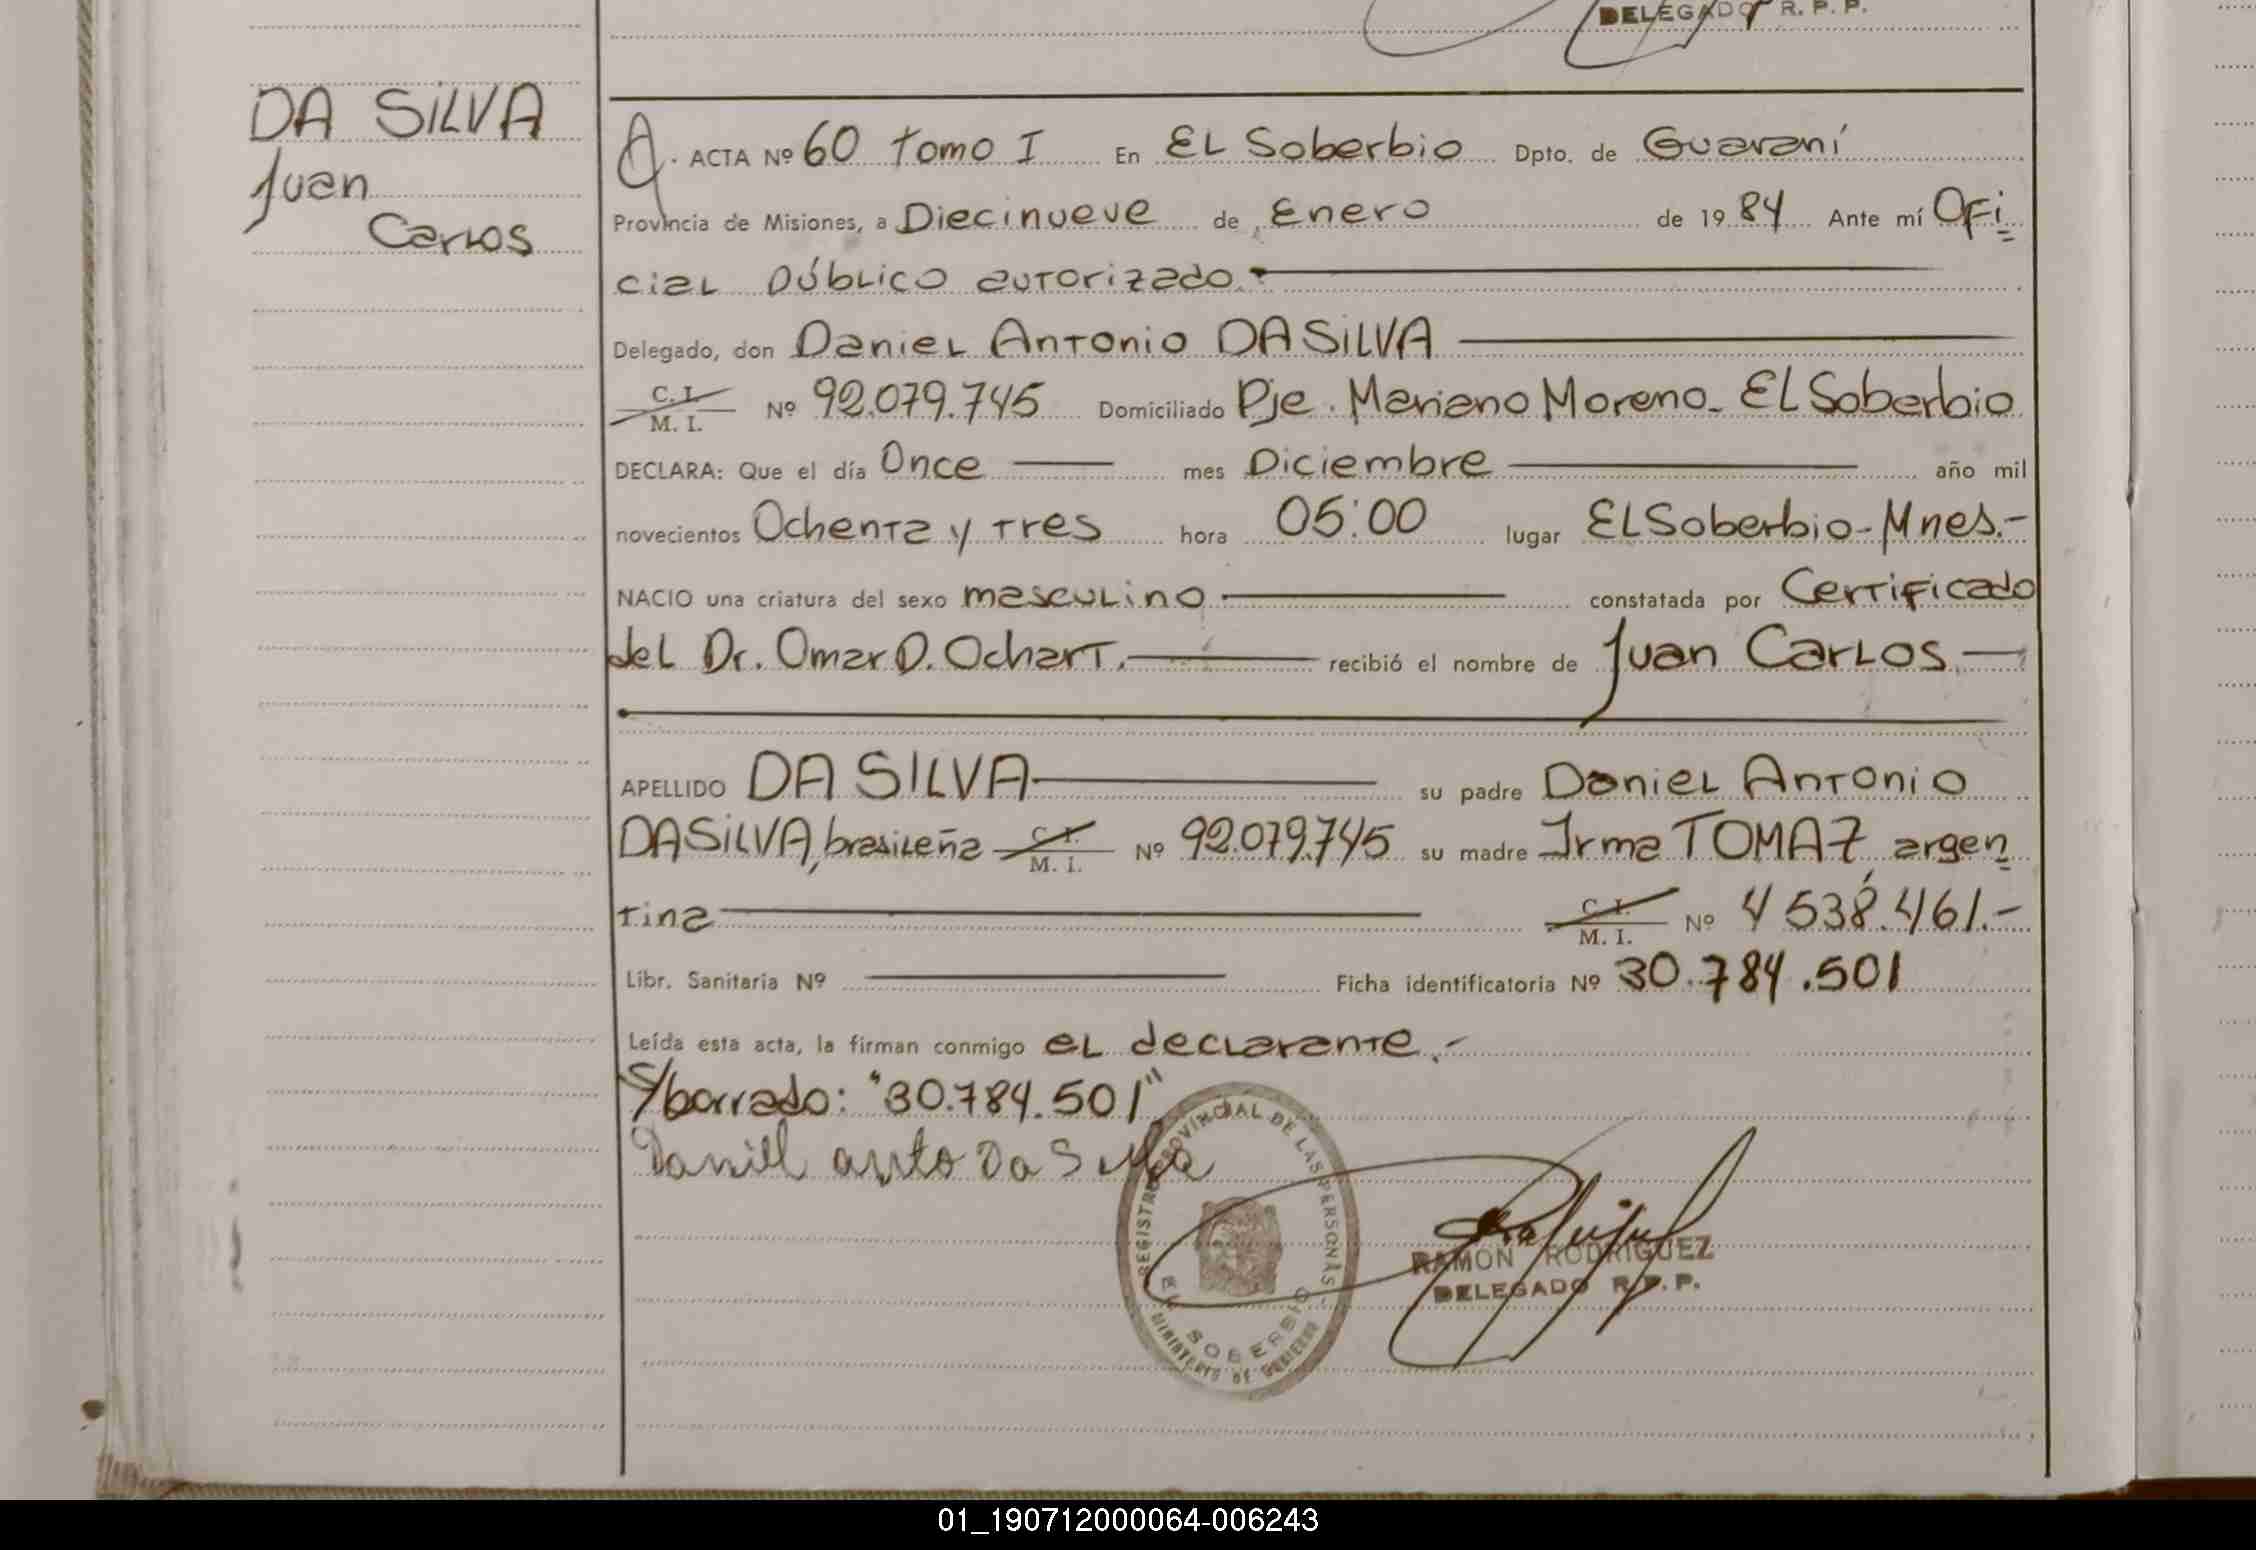 DELEGADO R. P. P.
DA SILVA
Juan
Carlos
ACTA Nº 60 tomo I En EL Soberbio Dpto. de Guaraní
Provincia de Misiones, a Diecinueve de Enero de 1984 Ante mí Ofi
cial público autorizado.
Delegado, don Daniel Antonio DA SILVA
C. I.
M. I. Nº 92.079.745 Domiciliado Pje. Mariano Moreno - EL Soberbio
DECLARA: Que el día Once mes Diciembre año mil
novecientos Ochenta y tres hora 05:00 lugar EL Soberbio - Mnes.-
NACIO una criatura del sexo masculino constatada por Certificado
del Dr. Omar D. Ochart. recibió el nombre de Juan Carlos
APELLIDO DA SILVA su padre Daniel Antonio
DA SILVA, brasileña C. I. M. I. Nº 92.079.745 su madre Irma TOMAZ, argen
tina C. I. M. I. Nº 4 538.461.-
Libr. Sanitaria Nº Ficha identificatoria Nº 30.784.501
Leída esta acta, la firman conmigo el declarante.-
S/borrado: "30.784.501"
Daniel anto Da Silva
REGISTRO PROVINCIAL DE LAS PERSONAS
EL SOBERBIO
MINISTERIO DE GOBIERNO
RAMON RODRIGUEZ
DELEGADO R. P. P.
01_190712000064-006243